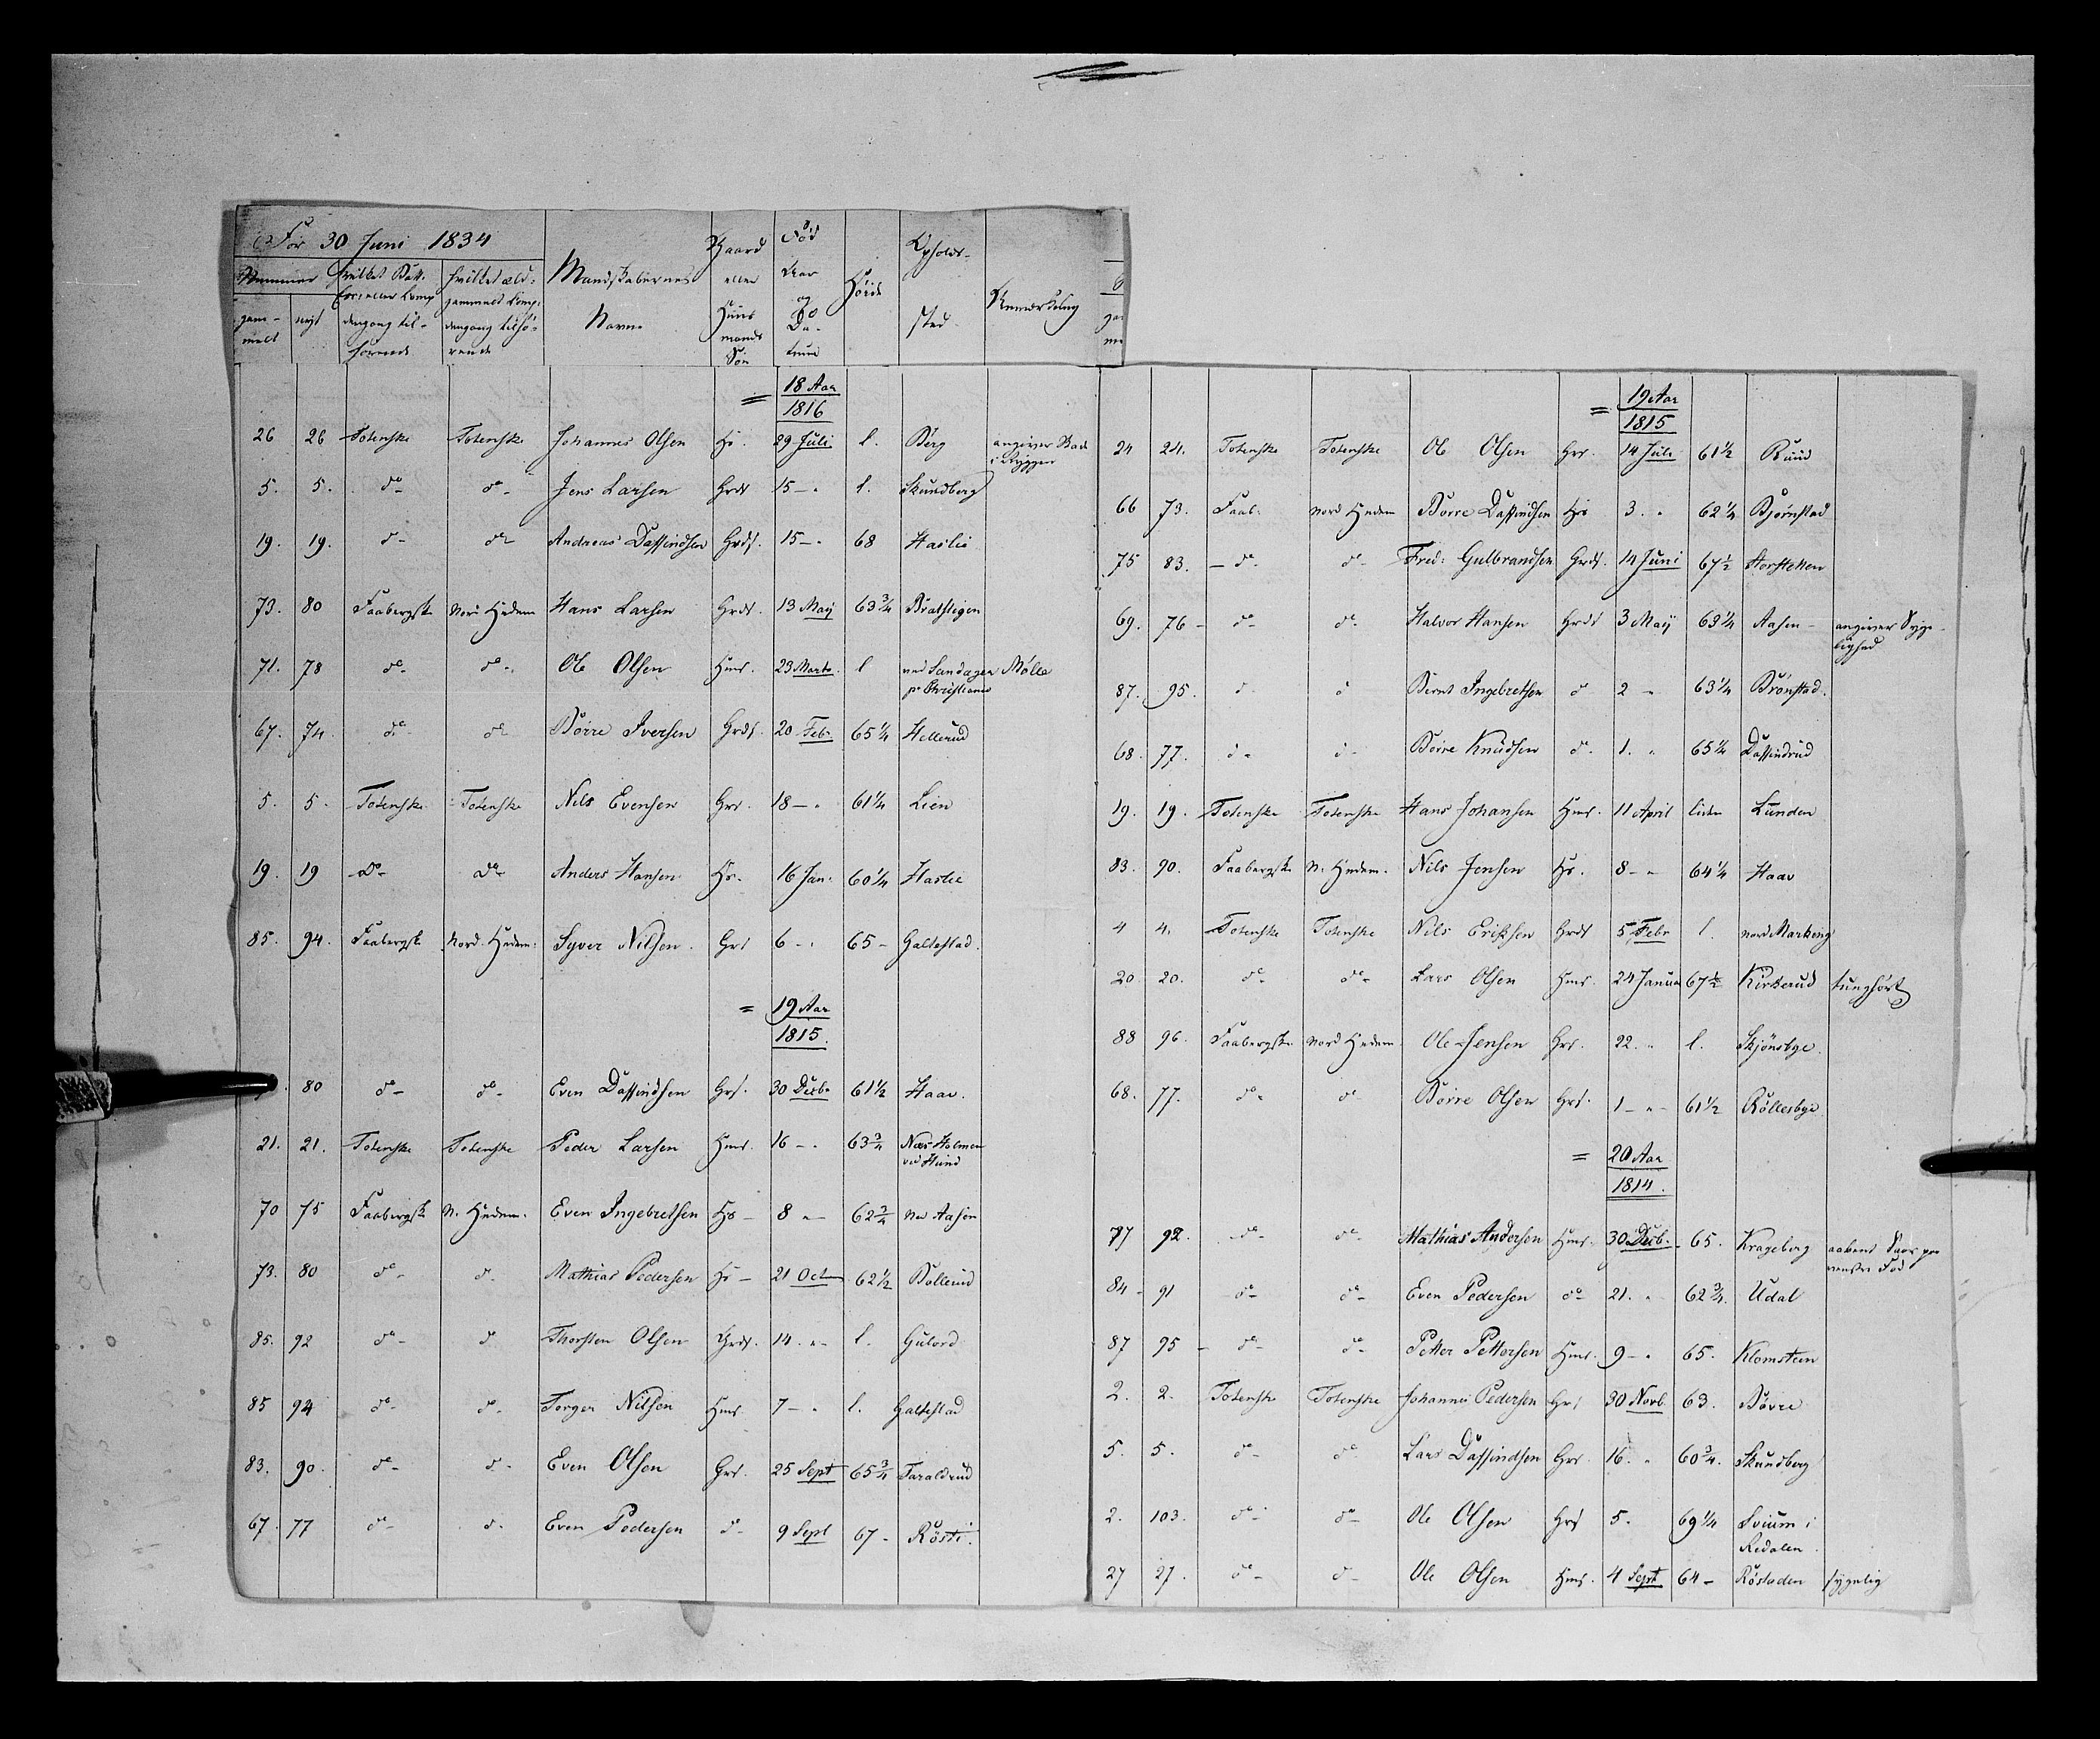 For 30 Juni 1834
Nummer
gam-
melt
nyt
Hvilket Batt.
dengang til-
hörende
dengang tilhö-
rende
Mandskabernes
Navne
Gaard
eller
Huus
mands
Sön
Föd
Aar
og
Da-
tum
Höide
Opholds-
sted
Anmærkning
= 18 Aar
1816
26 26 Totenske Totenske Johannes Olsen Hs. 29 Juli l. Berg angiver
i Ryggen
5. 5. do do Jens Larsen Grds 15 - " l. Skundberg
19. 19. do do Andreas Dassindsen Grds. 15 - " 68 Haslie
73. 80 Faabergsk Nord Hedem Hans Larsen Grds. 13 Maij 63 3/4 Bratstigen
71. 78 do do Ole Olsen Hms. 23 Marts. l ved Sandagen Mølle
pr Christiania
67. 74. do do Börre Iversen Grds. 20 Febr. 65 1/4 Hellerud
5. 5. Totenske Totenske Nils Evensen Grs. 18 - " 61 1/4 Lien
19. 19 do do Anders Hansen Hs. 16 Jan. 60 1/4 Haslie
85. 94. Faabergsk Nord. Hedem. Syver Nilsen Grs 6 - " 65 - Galtestad.
= 19 Aar
1815.
80 do do Even Dassindsen Grs. 30 Decbr 61 1/2 Haav.
21. 21. Totenske Totenske Peder Larsen Hms. 16 - " 63 3/4 Næs Holmen
ved Hund
70 75 Faabergsk N. Hedem. Even Ingebretsen Hs - 8 " - 62 3/4 Aasen
73. 80 do do Mathias Pedersen Hs - 21 Oct 62 1/2 Bollerud
85. 92 do do Thorsten Olsen Grds. 14. " - l. Gulord
85 94 do do Torger Nilsen Hms. 7 - " l. Galtestad
83. 90. do do Even Olsen Grs. 25 Sept 65 3/4 Taraldrud
67. 77 do do Even Pedersen do 9 Sept 67 - Rösti.
= 19 Aar
1815
24 24. Totenske Totenske Ole Olsen Grs. 14 Juli 61 1/2 Ruud
66 73. Faab. Nord Hedem Börre Dassindsen Hs 3. " 62 1/4 Bjørnstad
75 83. - do do Fred: Gulbrandsen Grds. 14 Juni 67 1/2
69. 76 - do do Halvor Hansen Grds 3 Maij 63 1/4 Aasen - angiver Syge-
lighed
87. 95. do do Bernt Ingebretsen do 2 - 63 1/4 Brönstad.
68. 77. do do Börre Knudsen do 1. " 65 1/4 Dassindrud
19. 19. Totenske Totenske Hans Johansen Hms. 11 April liden Lunden
83. 90. Faabergsk N. Hedem. Nils Jensen Hs. 8 - " 64 1/4 Haav
4 4. Totenske Totenske Nils Eriksen Grds 5 Febr l. nord Markeng
20 20. do do Lars Olsen Hms. 24 Januar 67 1/2 Kirkerud tunghört
88 96. Faabergsk. Nord Hedem. Ole Jensen Grs. 22. " l. Skjönsbye.
68. 77. do do Börre Olsen Grs. 1 - " - 61 1/2 Röllesbye
= 20 Aar
1814.
77 92. do do Mathias Andersen Hms. 30 Decb. 65. Krageberg aabent Saar paa
venstre Fod
84 - 91 do do Even Pedersen do 21. " 62 3/4. Udal
87 95 - do do Petter Pettersen Hms. 9 - " 65. Klomsteen
2. 2. Totenske Totenske Johannes Pedersen Grs 30 Novb. 63. Bövre
5. 5. do do Lars Dassindsen Grs. 16. " 60 3/4. Skundberg
2. 103. do do Ole Olsen Grs 5. 69 1/4 Svium i
Redalen.
27 27. do do Ole Olsen Hms. 4 Sept 64 - Röstaden sygelig